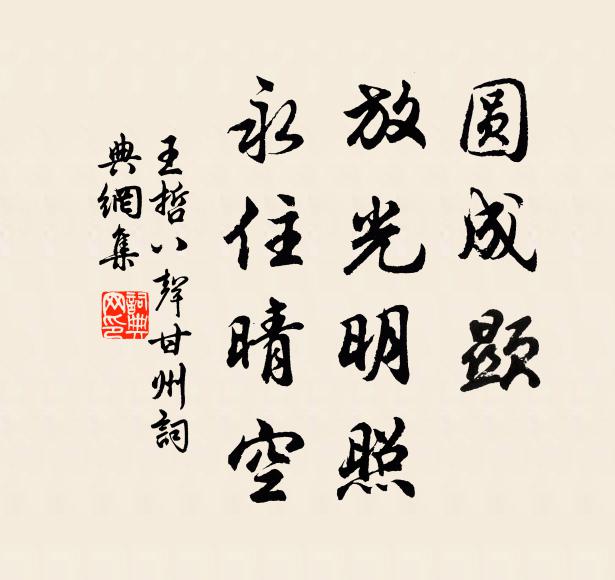 圆成顕
放光明照
永住晴空
王哲八聲甘州詞
典網集
詞典网印